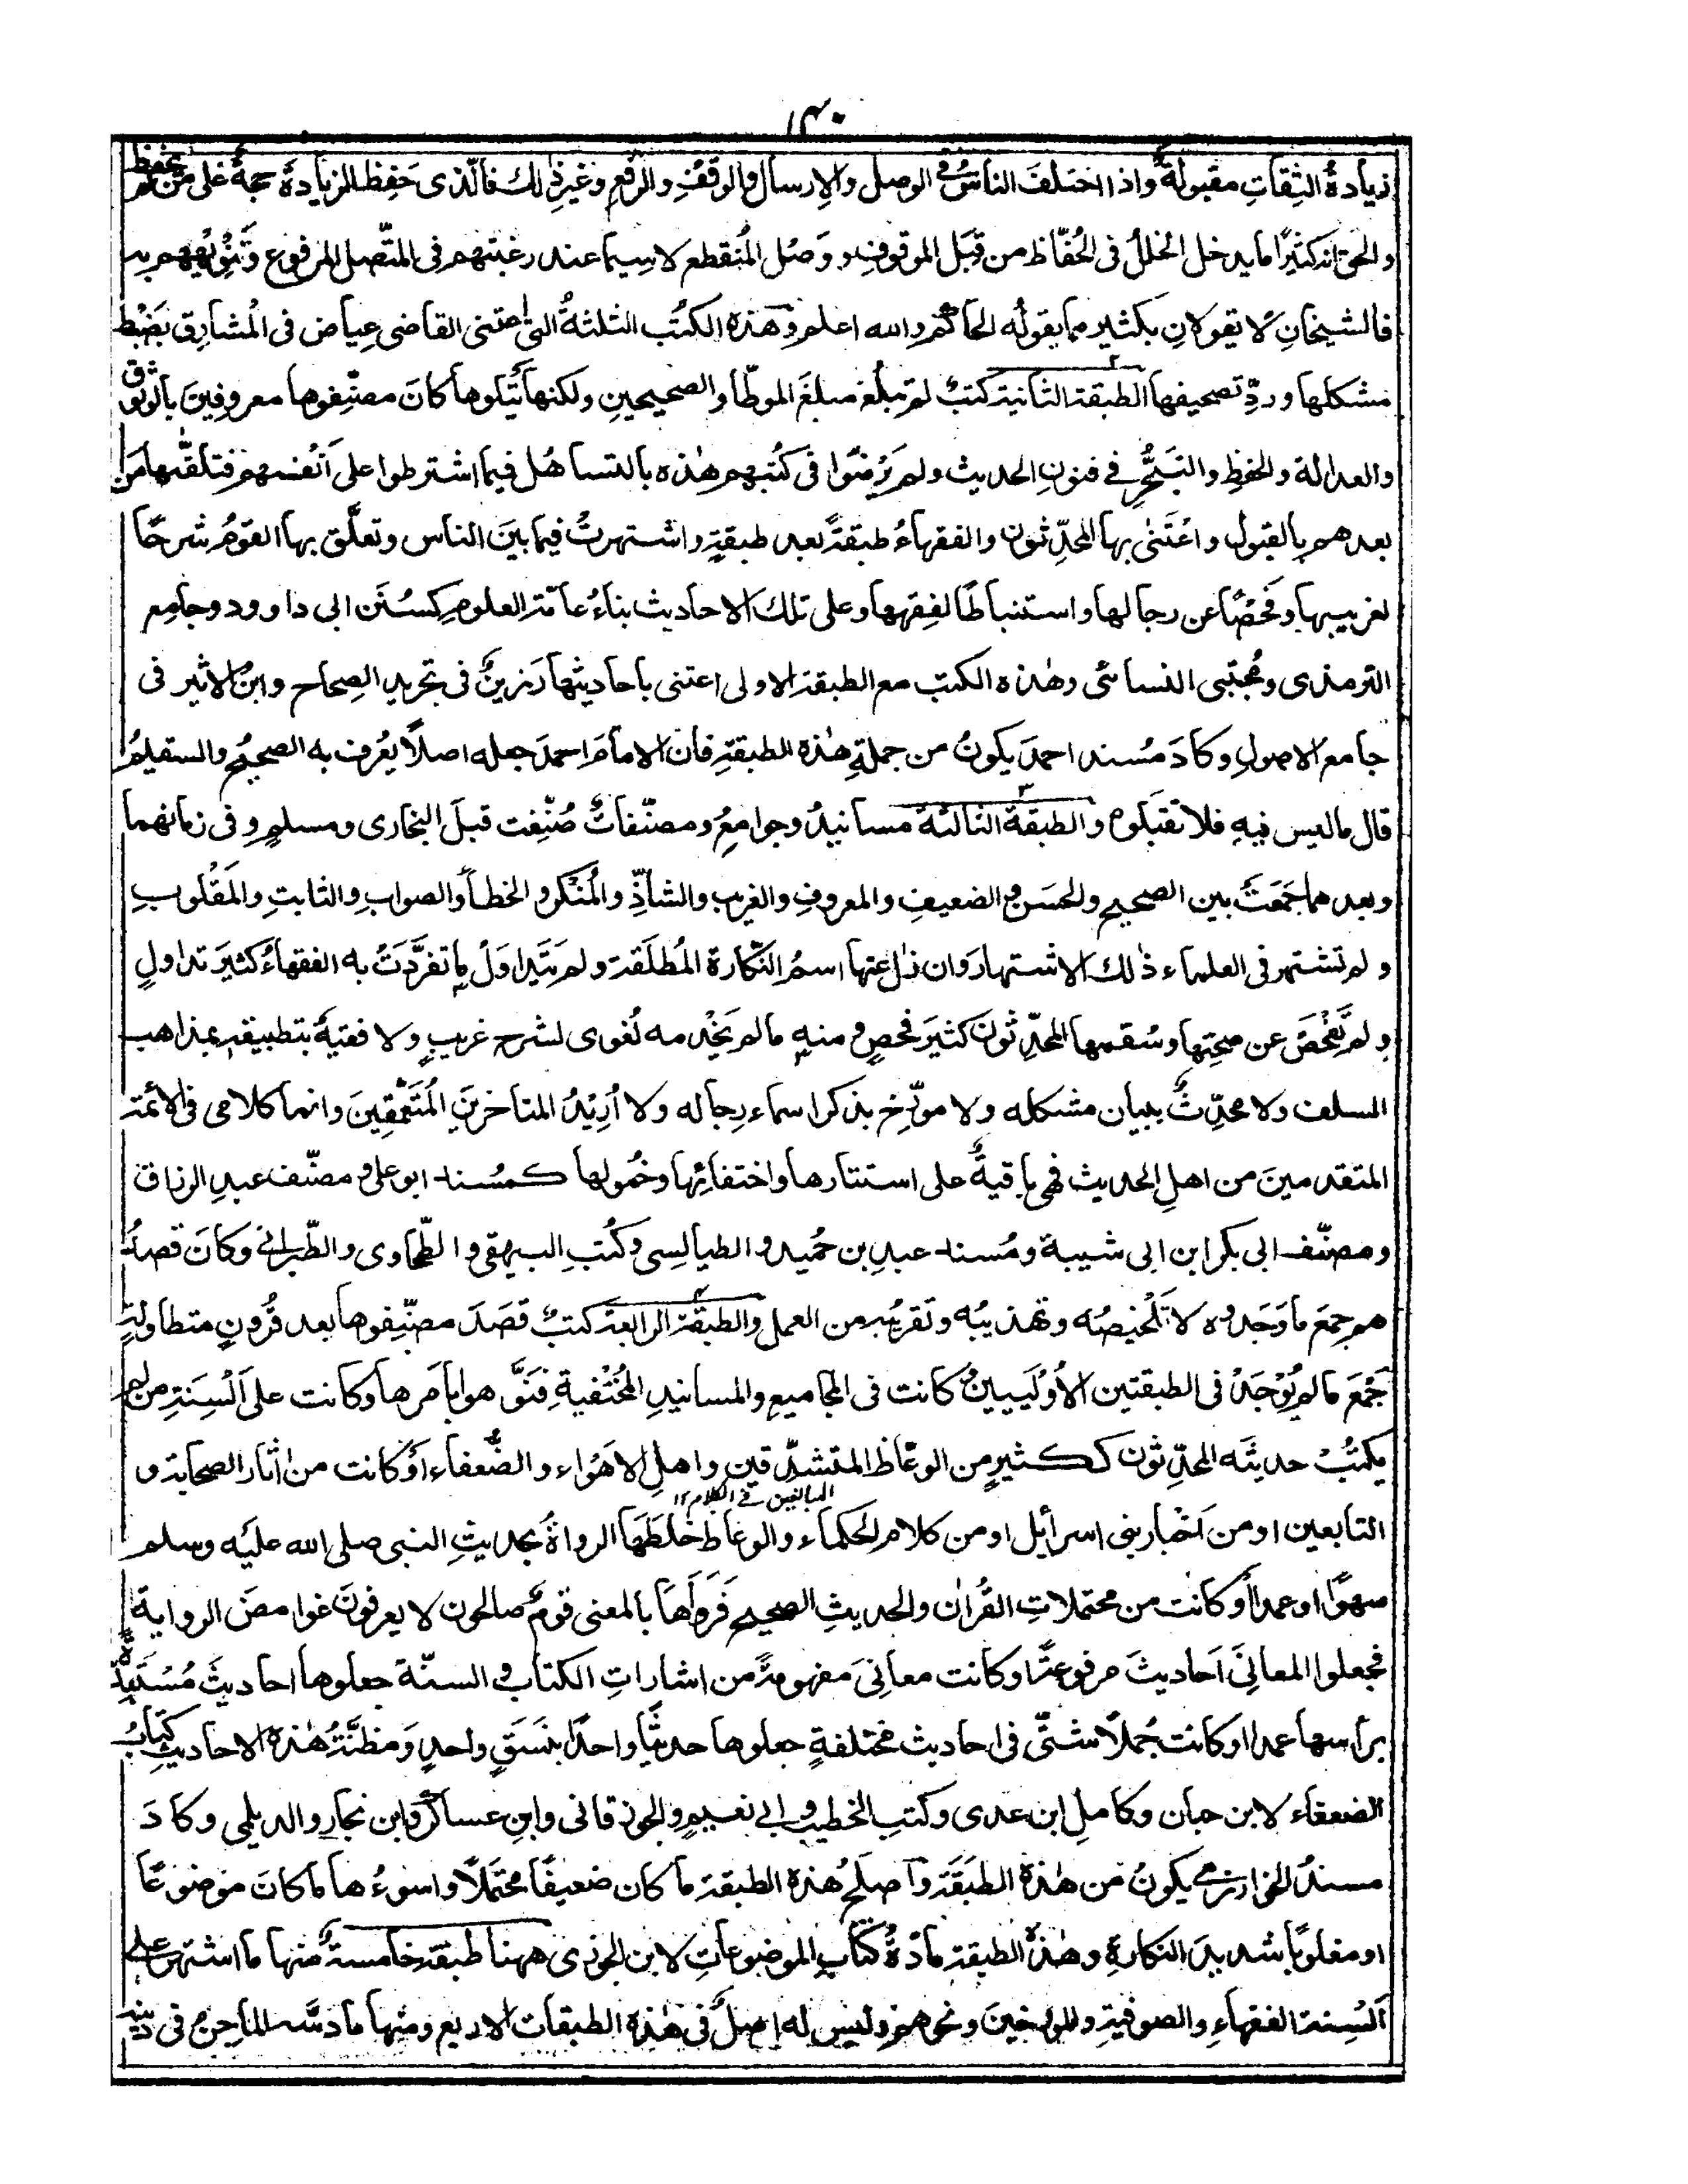 ١٣٠
زيادةُ الثِقاتِ مقبولةٌ واذا اختلفَ الناسُ فى الوصل والإرسال والوقفِ والرفعِ وغيرِ ذلك فالّذى حَفِظ الزيادةَ حجةٌ على من لم يحفظ
والحق انه كثيرًا ما يدخل الخللُ فى الحُفّاظ من قِبَل الموقوفِ ووَصْل المُنقطع لاسيما عند رغبتهم فى المتّصل المرفوع وتَنْوِيْهِهِم به
فالشيخانِ لا يقولانِ بكثير مما يقولُه الحاكم والله اعلم وهذه الكتُب الثلثةُ التى اعتنى القاضى عِياض فى المشارِق بضَبْط
مشكلها وردِّ تصحيفها الطبقة الثانية كتبٌ لم تبلُغ مبلغَ الموطّأ والصحيحينِ ولكنها تَتْلوها كانَ مصنّفوها معروفينَ بالوثوق
والعدالة والحفظِ والتبَحُّرِ فے فنونِ الحديث ولم يَرْضَوا فى كتُبهم هٰذه بالتساهُل فيما اشترطوا على اَنْفسهم فتلقّٰها مَن
بعدهم بالقبول واعْتَنٰى بها المحدِّثون والفقهاءُ طبقةً بعد طبقةٍ واشتهرتْ فيما بينَ الناس وتعلَّق بها القومُ شرحًا
لغريبها وفحْصًا عن رجالها واستنباطًا لفِقهها وعلى تلك الاحاديث بناءُ عامّة العلوم كسُنَن ابى داوود وجامع
الترمذى ومُجتبى النسائى وهٰذه الكتب مع الطبقة الاولى اعتنى باحاديثها رَزينٌ فى تجريد الصِحاح وابنُ الاثير فى
جامع الاصولِ وكادَ مُسند احمدَ يكونُ من جملةِ هٰذه الطبقةِ فان الامامَ احمدَ جعله اصلًا يُعرف به الصحيحُ والسقيمُ
قال ما ليس فيهِ فلا تقبَلوه والطبقة الثالثة مسانيدُ وجوامعُ ومصنّفاتٌ صُنّفت قبلَ البخارى ومسلمٍ وفى زمانهما
وبعدهما جَمَعَتْ بين الصحيح والحسَن والضعيفِ والمعروفِ والغريب والشاذِّ والمُنْكر والخطأ والصواب والثابتِ والمَقْلوبِ
ولم تشتهر فى العلماء ذٰلك الاشتهارَ وان زال عنها اسمُ النَّكارة المُطلَقة ولم يَتداوَلْ ما تفرَّدَتْ به الفقهاءُ كثيرَ تداولٍ
ولم يَفْحَصْ عن صحّتِها وسُقمها المحدّثونَ كثيرَ فحصٍ ومنه ما لم يَخْدمه لُغوى لشرح غريبٍ ولا فقيهٌ بتطبيقه بمذاهب
السلف ولا محدّثٌ ببيان مشكله ولا مورّخ بذكر اسماء رِجاله ولا أُرِيْدُ المتاخرينَ المُتَعَمّقِينَ وانما كلامى فى الائمّة
المتقدمينَ من اهلِ الحديث فهى باقيةٌ على استتارها واختفائِها وخُمولها كمُسند ابو على ومصنّف عبدِ الرزاق
ومصنّف ابى بكر ابن ابى شيبة ومُسند عبدِ بن حُميد والطيالِسى وكُتبِ البيهقى والطّحاوى والطّبرانے وكانَ قصدُ
هم جمعَ ما وَجَدوه لا تَلْخيصُه وتهذيبُه وتقريبُه من العمل والطبقة الرابعة كتبٌ قصَدَ مصنّفوها بعد قُرونٍ متطاولةٍ
جَمْعَ ما لم يُوْجَدْ فى الطبقتين الأُوْلَيينِ وكانت فى المجاميع والمسانيدِ المُخْتفيةِ فنَوَّهوا بامرها وكانت على اَلْسِنَةِ من لم
يكتُبْ حديثَه المحدّثون ككثيرٍ من الوعّاظ المتشدّقين واهلِ الاهْواء والضُّعفاء اَوْ كانت من اٰثار الصحابة و
المبالغين فے الكلام ١٢
التابعين او من اَخْبار بنى اسرائيل او من كلام الحكماء والوعاظ خلَطَها الرواةُ بحديثِ النبى صلى الله عليه وسلم
سهوًا او عمدًا أو كانت من محتملاتِ القُرانِ والحديثِ الصحيح فَرَواهَا بالمعنى قومٌ صالحون لا يعرفونَ غوامضَ الرواية
فجعلوا المعانِىَ اَحاديثَ مرفوعةً او كانت معانِىَ مفهومةً من اشاراتِ الكتاب والسنّة جعلوها احاديثَ مُسْتَبِدّةً
برأسها عمدا او كانت جُملًا شتّٰى فى احاديث مختلفةٍ جعلوها حديثًا واحدًا بنَسَقٍ واحدٍ وَمظنّةُ هٰذه الاحاديث كتابُ
الضعفاء لابن حبان وكاملِ ابن عدى وكتبِ الخطيب وابے نعيم والجوزقانى وابنِ عساكر وابن نجار والديلمى وكادَ
مسندُ الخوارزمے يكونُ من هٰذه الطبَقة وَاَصلَحُ هٰذه الطبقة ما كان ضعيفًا محتَملًا واسوءُها ما كانَ موضوعًا
او مقلوبًا شديدَ النكارةِ وهٰذه الطبقة مادّةُ كتابِ الموضوعاتِ لابن الجوزى ههنا طبقة خامسةٌ منها ما اشتهر على
اَلْسِنة الفقهاءِ والصوفيةِ والمورخينَ ونحوهم وليس له اصلٌ فى هٰذه الطبقات الاربع ومنها ما دسَّه الماجِنُ فى دينه